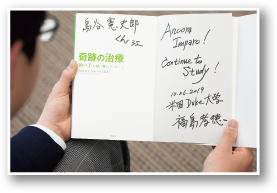 島谷憲史郎
くん江
奇跡の治療
Ancora
Imparo!
Continue to
Study!
10.06.2019
米国 Duke大学
福島孝徳